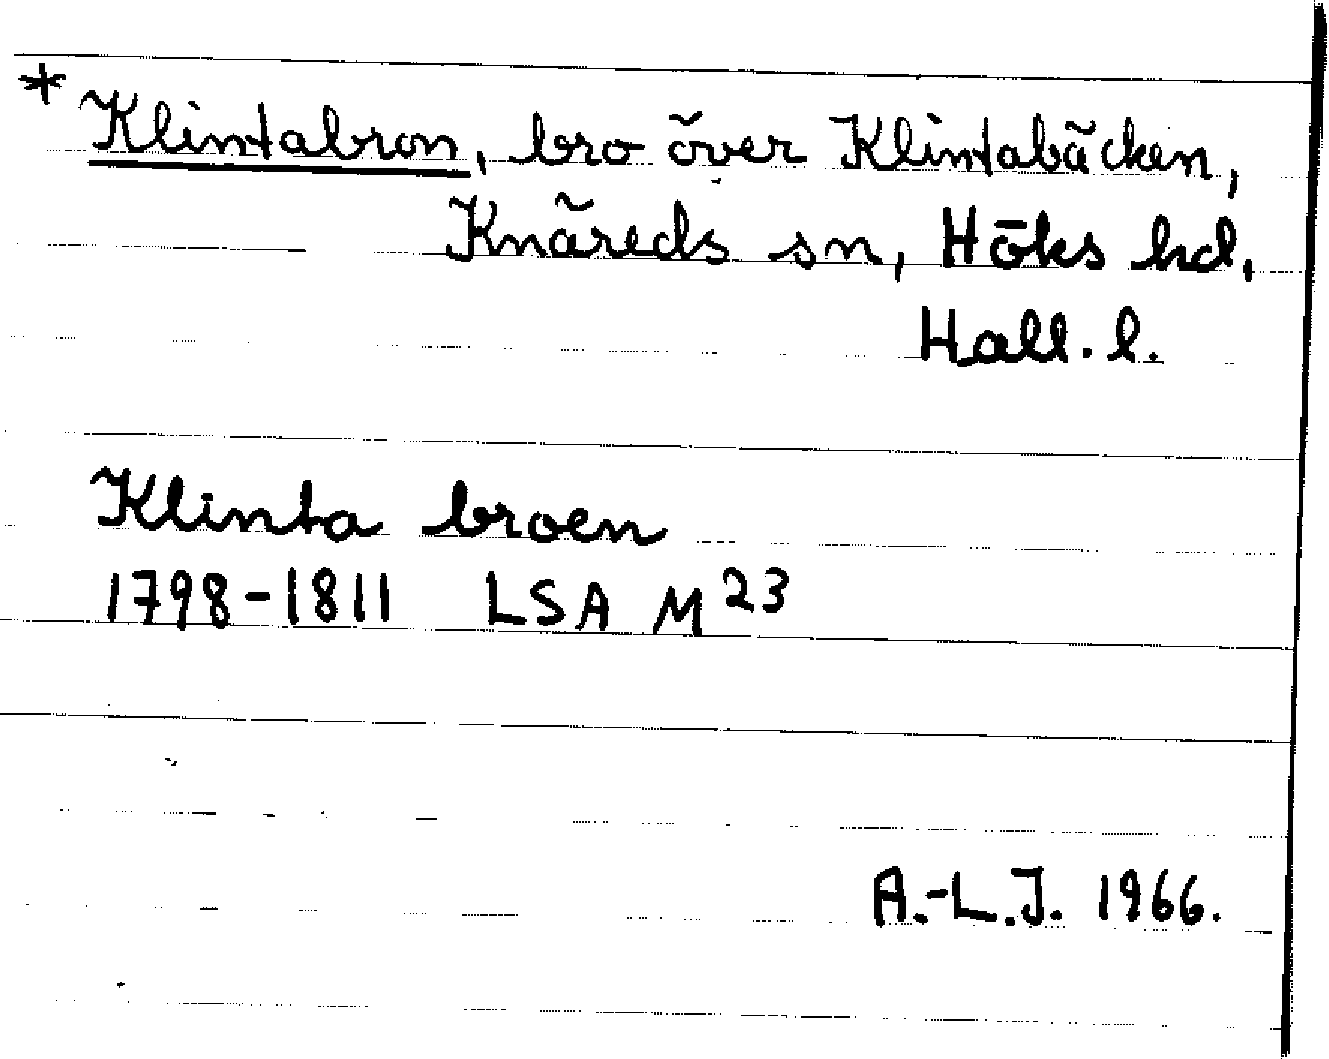 * Klintabron, bro över Klintabäcken,
Knäreds sn, Höks hd,
Hall. l.
Klinta broen
1798-1811 LSA M 23
A.-L.J. 1966.